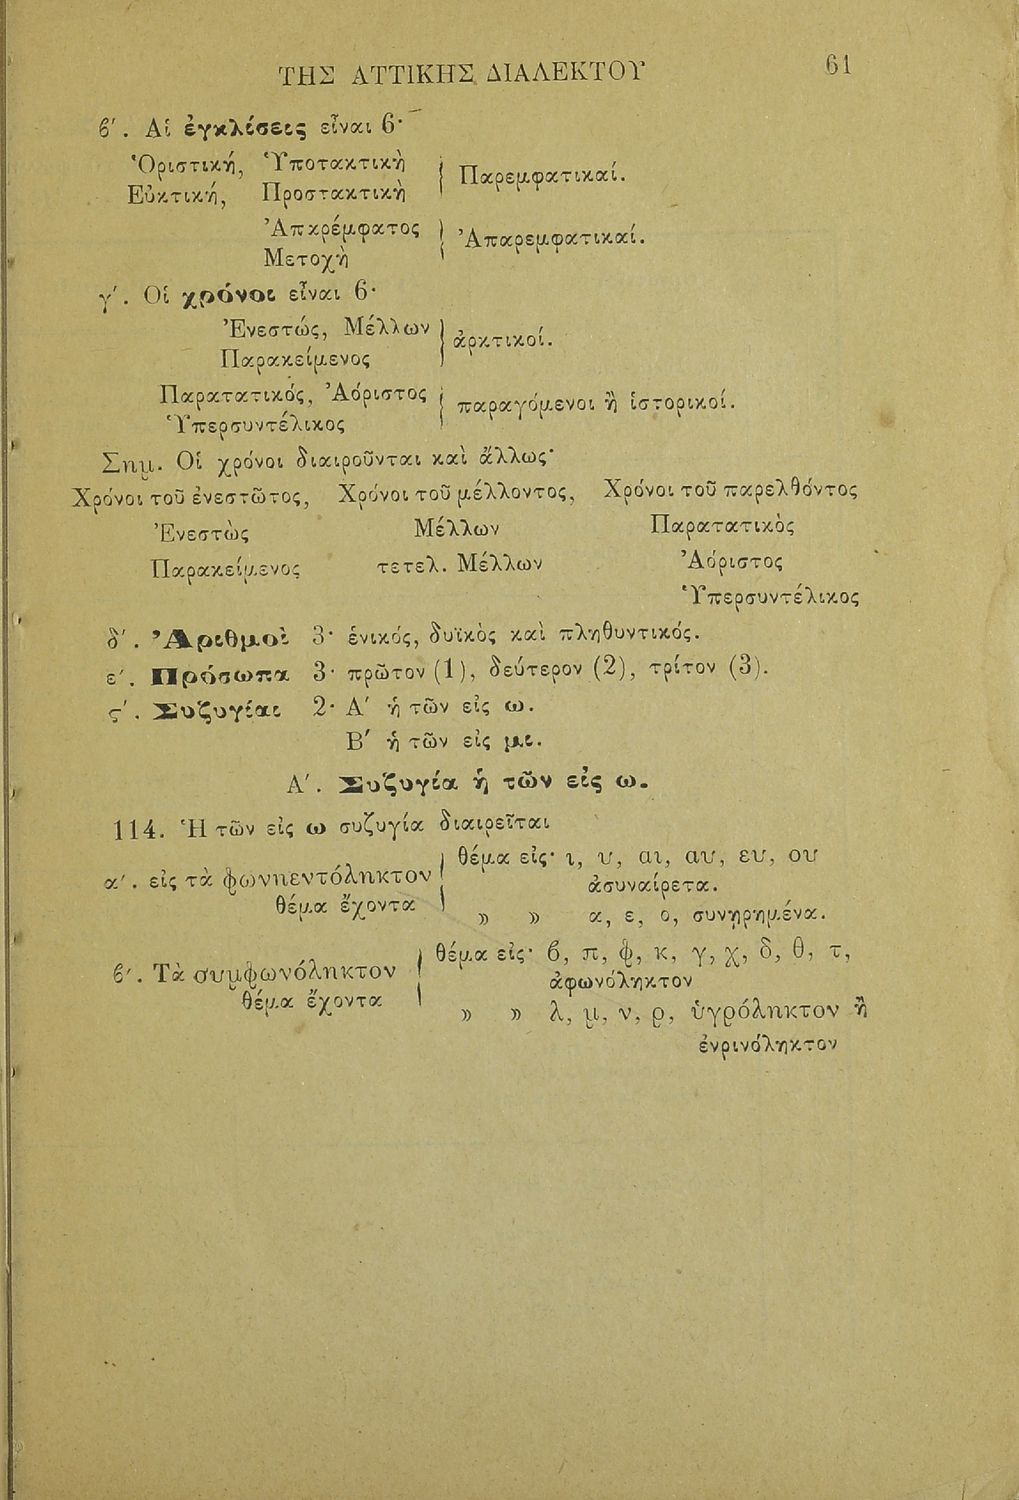 ΤΗΣ ΑΤΤΙΚΗΣ ΔΙΑΛΕΚΤΟΥ 61
β΄. Αἱ ἐγκλίσεις εἶναι 6·
Ὁριστική, Ὑποτακτικὴ
Εὐκτική, Προστακτικὴ } Παρεμφατικαί.
Ἀπαρέμφατος
Μετοχὴ } Ἀπαρεμφατικαί.
γ΄. Οἱ χρόνοι εἶναι 6·
Ἐνεστώς, Μέλλων
Παρακείμενος } ἀρκτικοί.
Παρατατικός, Ἀόριστος
Ὑπερσυντέλικος } παραγόμενοι ἢ ἱστορικοί.
Σημ. Οἱ χρόνοι διαιροῦνται καὶ ἄλλως·
Χρόνοι τοῦ ἐνεστῶτος, Χρόνοι τοῦ μέλλοντος, Χρόνοι τοῦ παρελθόντος
Ἐνεστὼς Μέλλων Παρατατικὸς
Παρακείμενος τετελ. Μέλλων Ἀόριστος
Ὑπερσυντέλικος
δ΄. Ἀριθμοὶ 3· ἑνικός, δυϊκὸς καὶ πληθυντικός.
ε΄. Πρόσωπα 3· πρῶτον (1), δεύτερον (2), τρίτον (3).
ς΄. Συζυγίαι 2· Α΄ ἡ τῶν εἰς ω.
Β΄ ἡ τῶν εἰς μι.
Α΄. Συζυγία ἡ τῶν εἰς ω.
114. Ἡ τῶν εἰς ω συζυγία διαιρεῖται
α΄. εἰς τὰ φωνηεντόληκτον
θέμα ἔχοντα } θέμα εἰς· ι, υ, αι, αυ, ευ, ου
ἀσυναίρετα.
» » α, ε, ο, συνῃρημένα.
β΄. Τὰ συμφωνόληκτον
θέμα ἔχοντα } θέμα εἰς· β, π, φ, κ, γ, χ, δ, θ, τ,
ἀφωνόληκτον
» » λ, μ, ν, ρ, ὑγρόληκτον ἢ
ἐνρινόληκτον